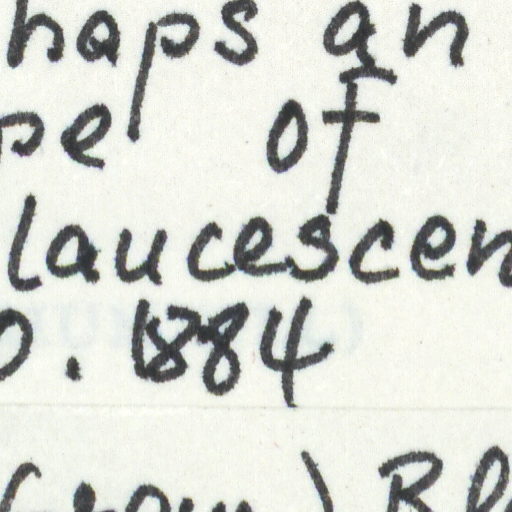 haps an
pe of
laucescen
0. 1884
) Bl